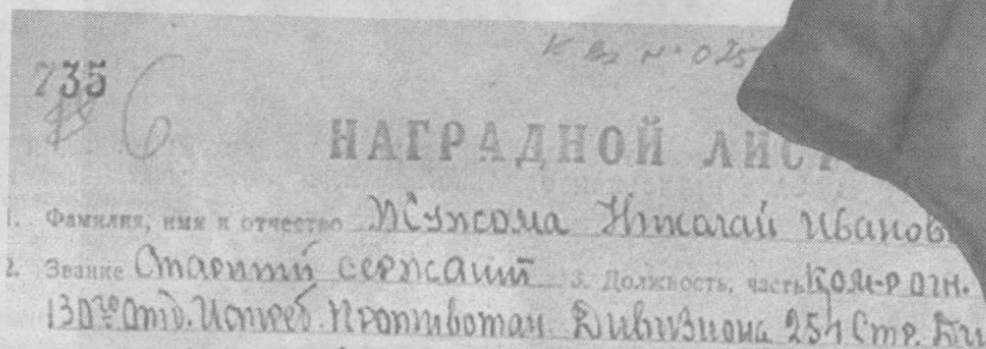 К вх № 025
735
6
НАГРАДНОЙ ЛИСТ
1. Фамилия, имя и отчество Жужома Николай Иванов
2. Звание Старший сержант 3. Должность, часть Ком-р огн.
130го Отд. Истреб. Противотан. Дивизиона 254 Стр. Ди